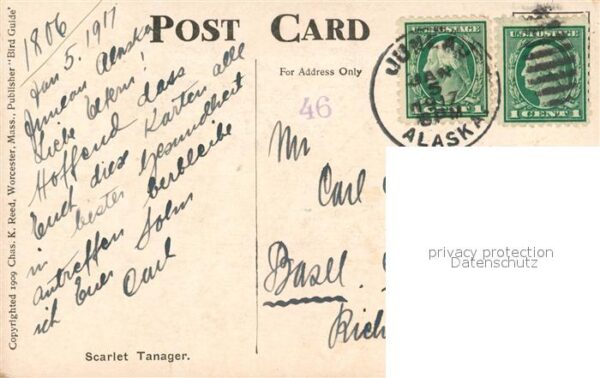 1806
Jan 5. 1917
Juneau Alaska
Liebe Eltern!
Hoffend dass
Euch diese Karten alle
in bester Gesundheit
antreffen verbleibe
ich Euer Sohn
Carl
Scarlet Tanager.
Copyrighted 1909 Chas. K. Reed, Worcester, Mass., Publisher "Bird Guide"
POST CARD
For Address Only
46
Mr
Carl
Basel.
U.S. POSTAGE
1
JUNEAU
JAN
5
1917
ALASKA
U.S. POSTAGE
1 CENT 1
privacy protection
Datenschutz